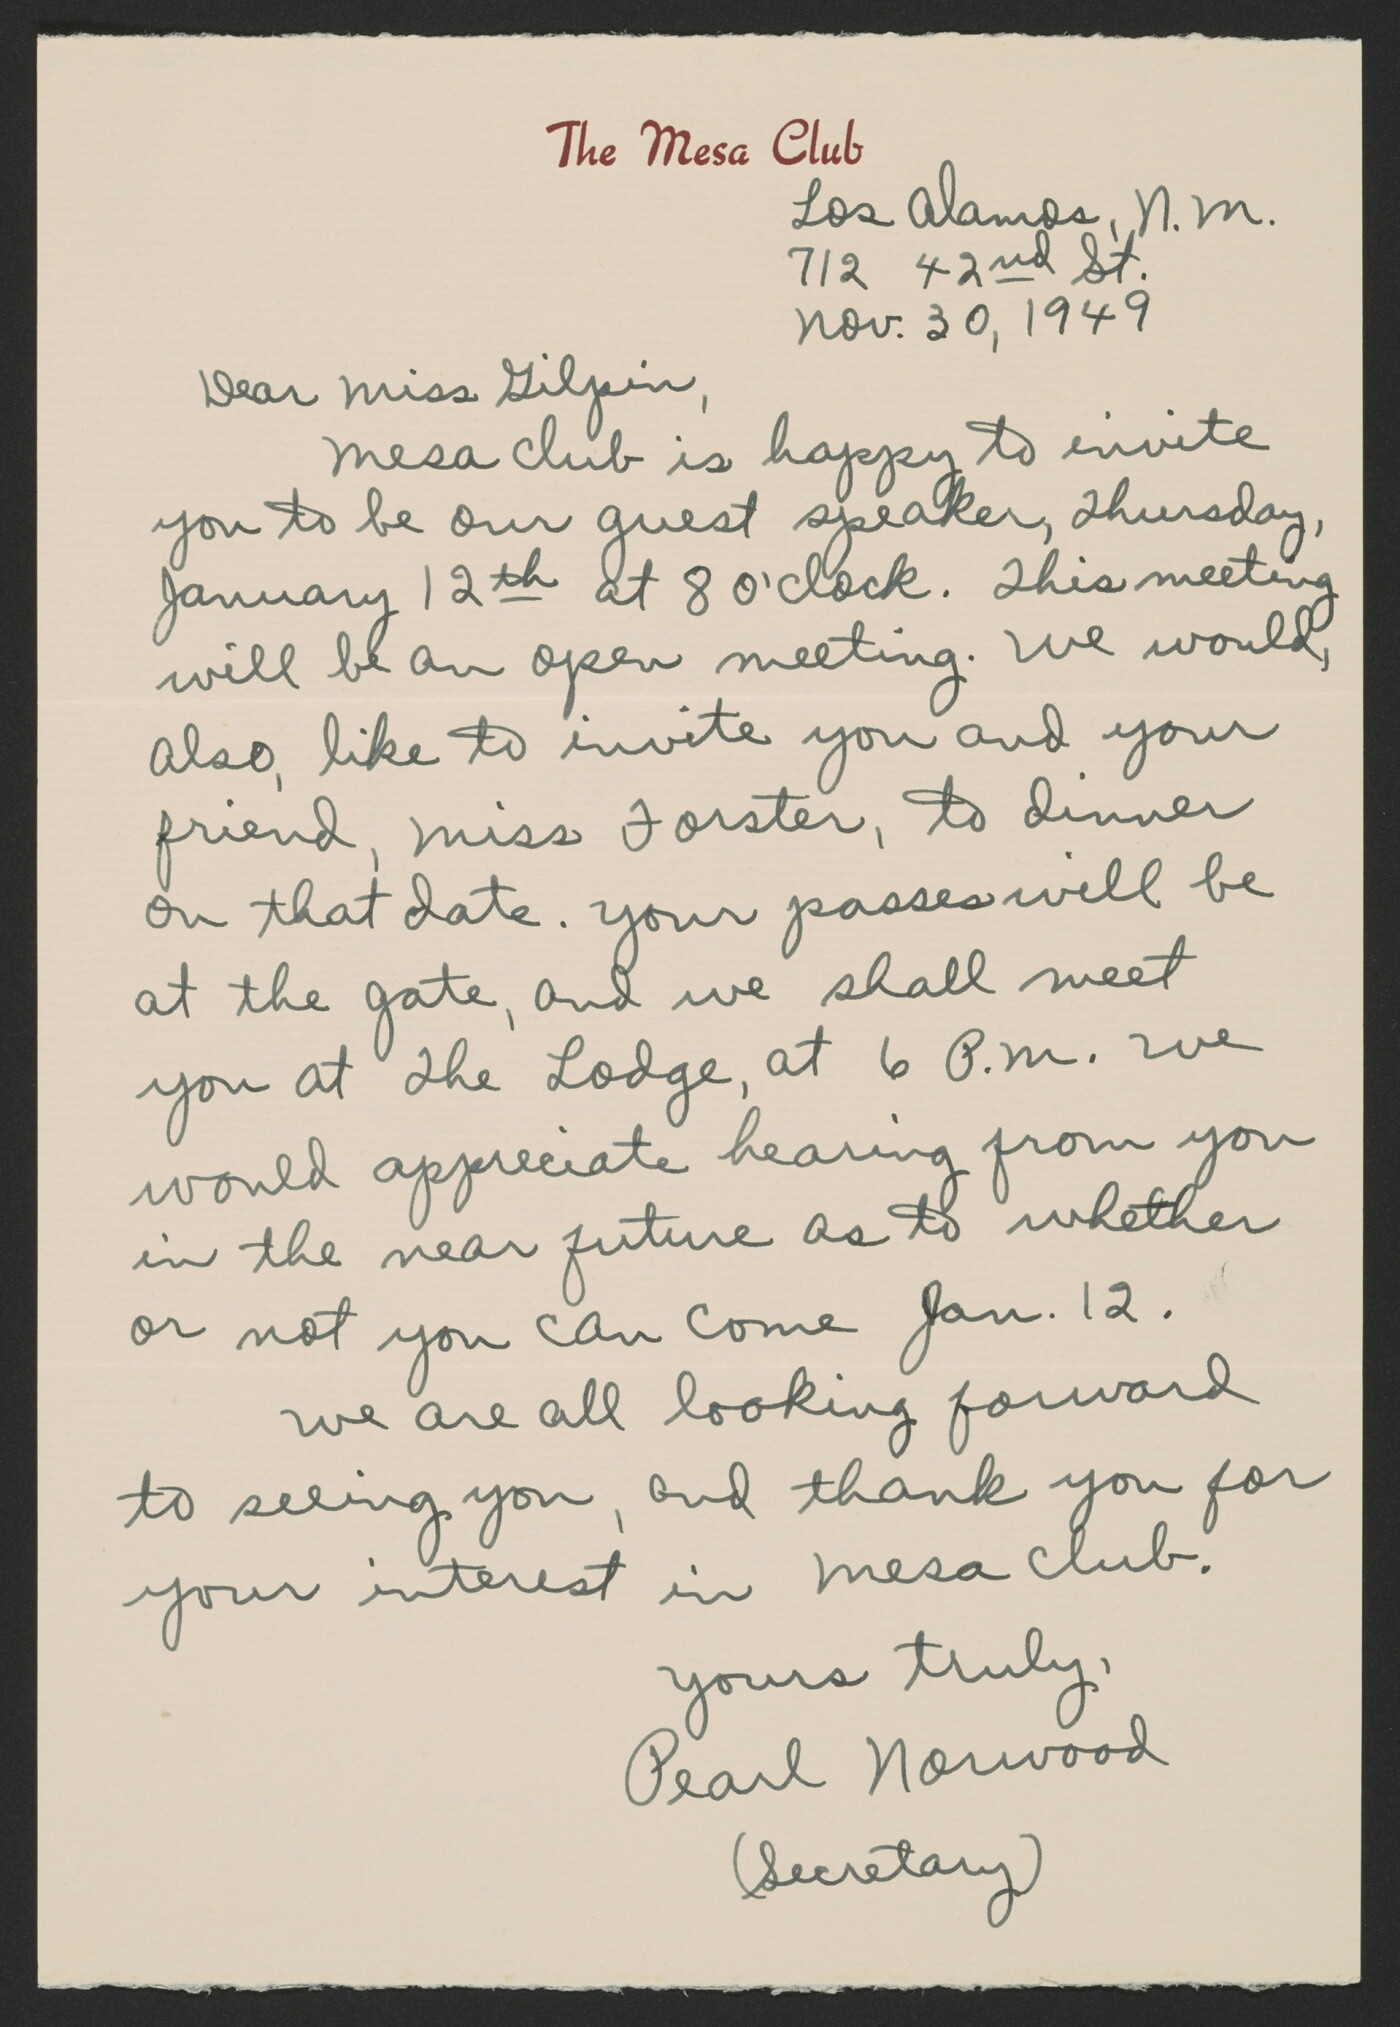 The Mesa Club
Los Alamos, N.M.
712 42nd St.
Nov. 30, 1949
Dear Miss Gilpin,
Mesa Club is happy to invite
you to be our guest speaker, Thursday,
January 12th at 8 o'clock. This meeting
will be an open meeting. We would,
also, like to invite you and your
friend, Miss Forster, to dinner
on that date. Your passes will be
at the gate, and we shall meet
you at The Lodge, at 6 P.M. We
would appreciate hearing from you
in the near future as to whether
or not you can come Jan. 12.
We are all looking forward
to seeing you, and thank you for
your interest in Mesa Club.
Yours truly,
Pearl Norwood
(Secretary)